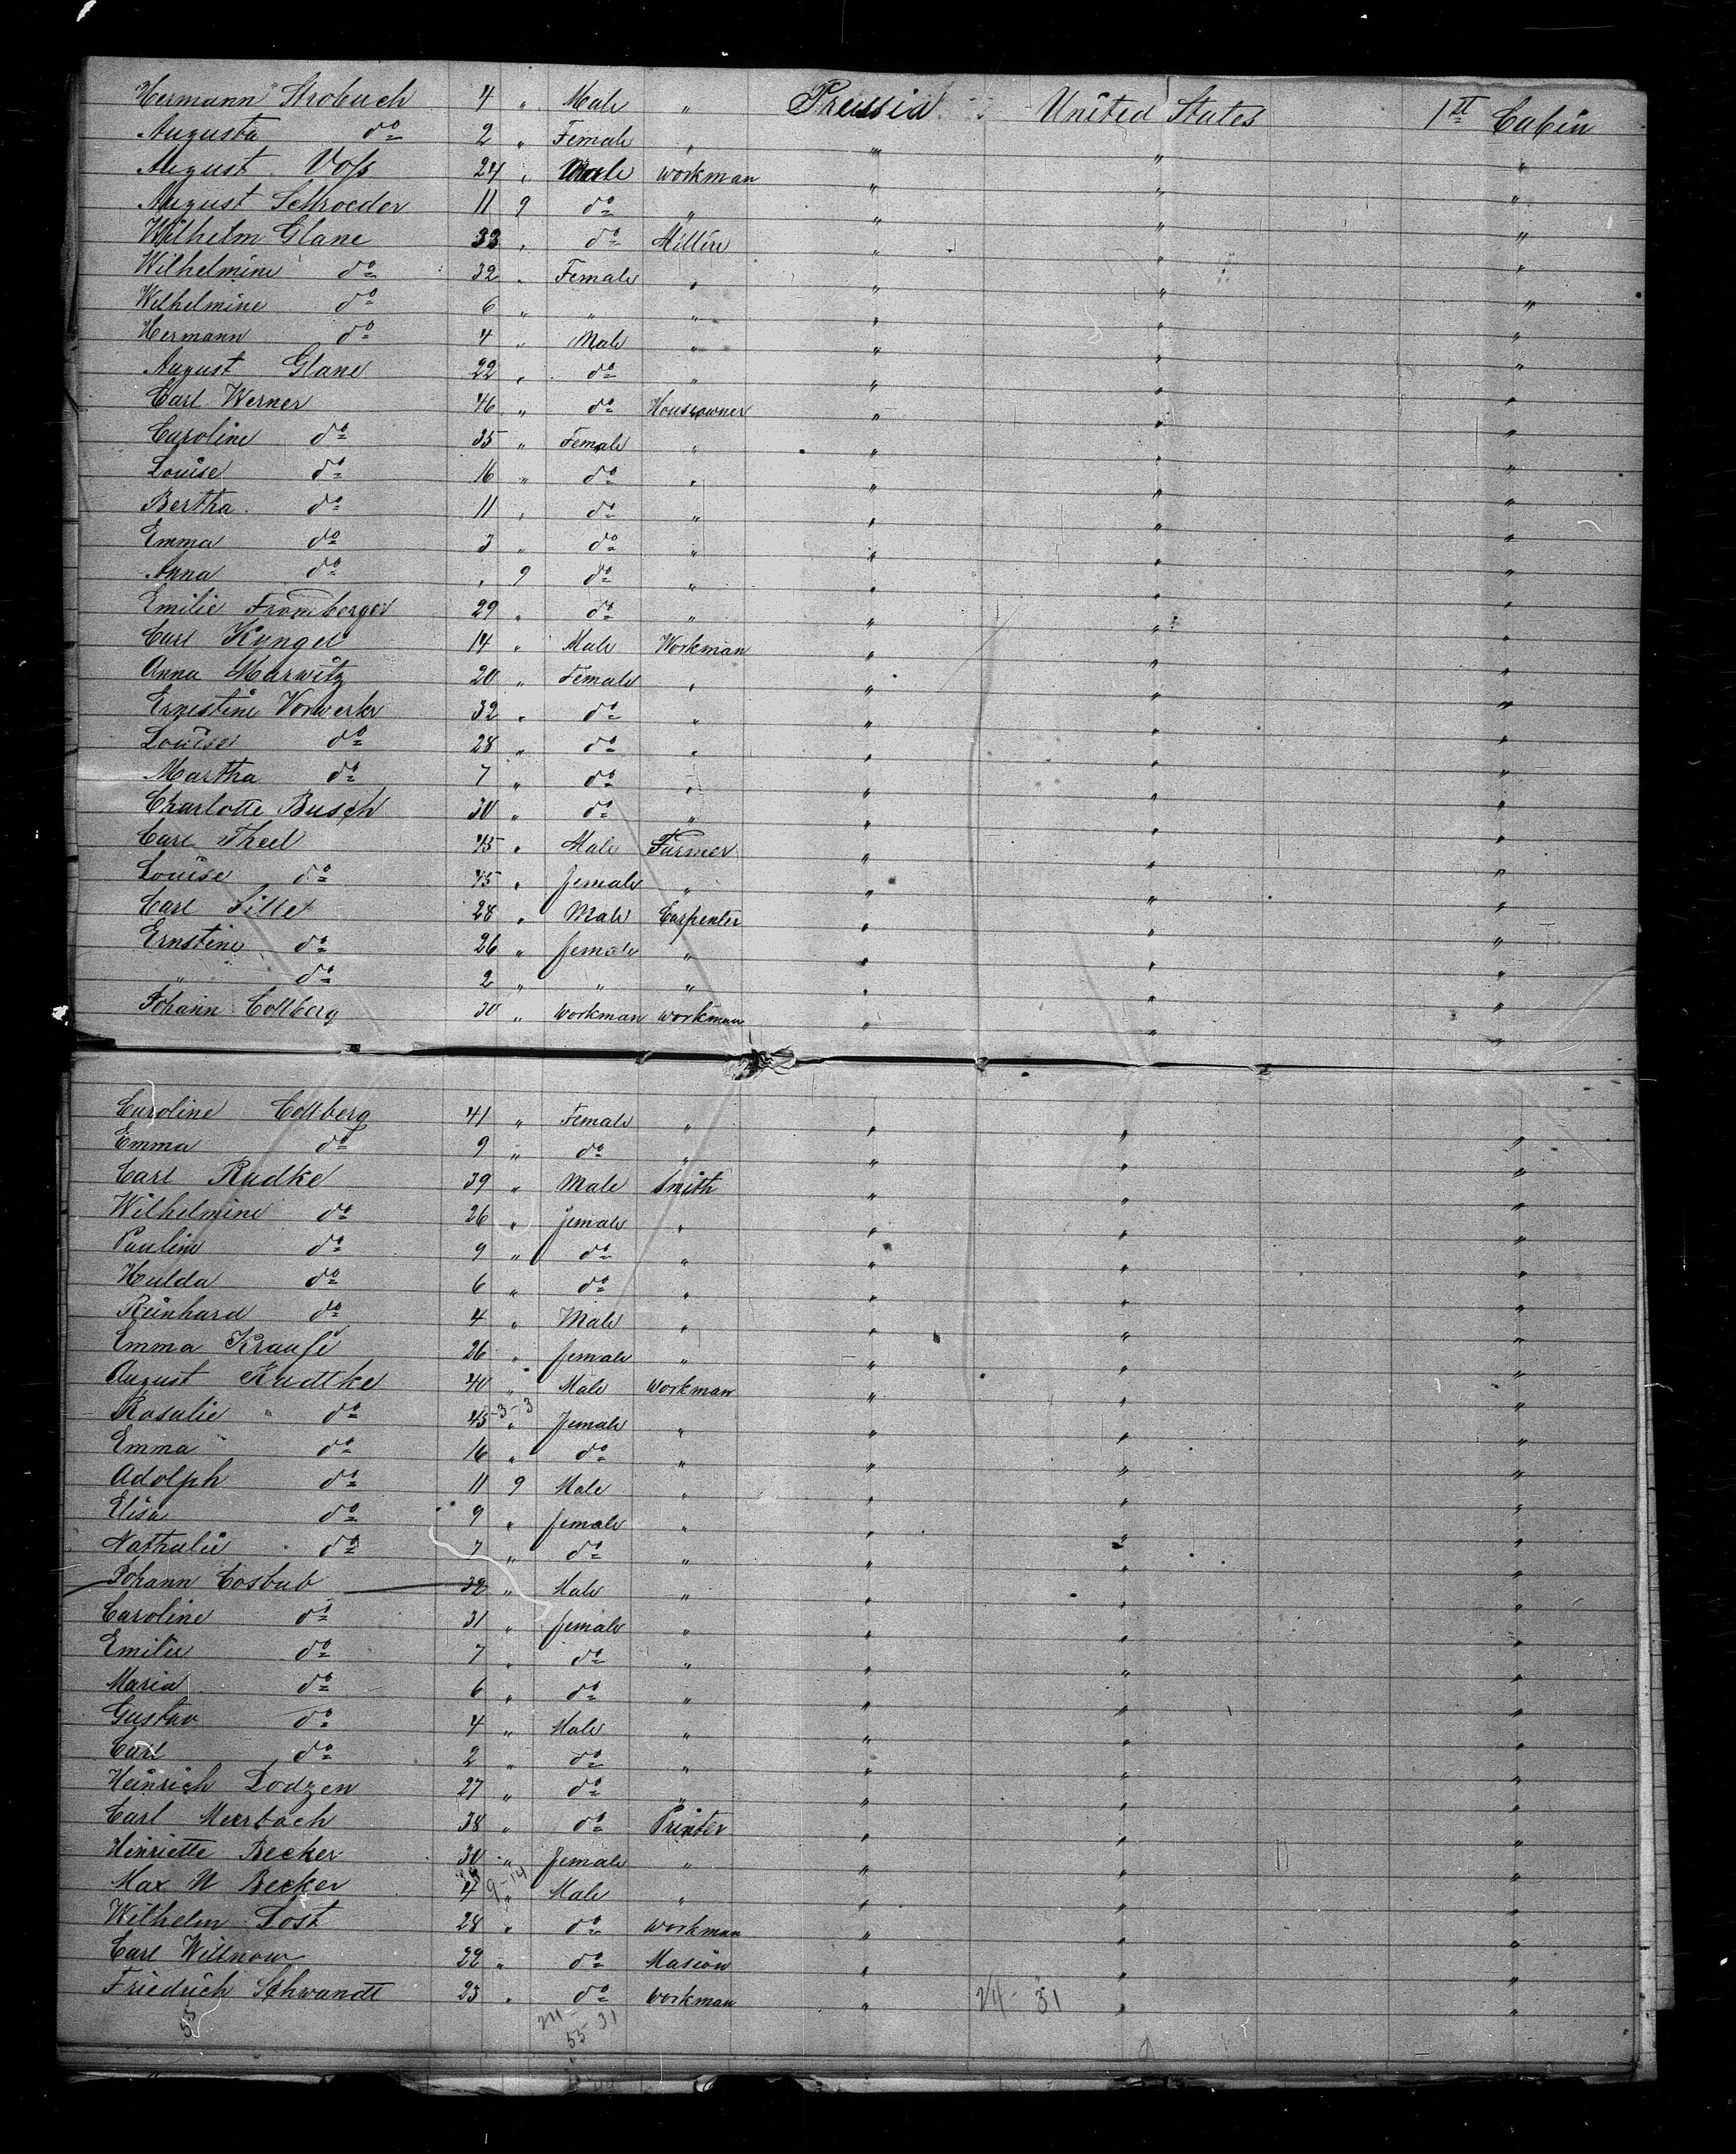 Hermann Strobach 4 " Male " Prussia United States 1st Cabin
Augusta do 2 " Female " " " "
August Voss 24 " Male workman " " "
August Schroeder 11 9 do " " " "
Wilhelm Glane 33 " do Miller " " "
Wilhelmine do 32 " Female " " " "
Wilhelmine do 6 " " " " " "
Hermann do 4 " Male " " " "
August Glane 22 " do " " " "
Carl Werner 46 " do Houseowner " " "
Caroline do 35 " Female " " " "
Louise do 16 " do " " " "
Bertha do 11 " do " " " "
Emma do 3 " do " " " "
Anna do " 9 do " " " "
Emilie Fromberger 29 " do " " " "
Carl Kyngel 14 " Male Workman " " "
Anna Marwitz 20 " Female " " " "
Ernestine Vorwerk 32 " do " " " "
Louise do 28 " do " " " "
Martha do 7 " do " " " "
Charlotte Busch 30 " do " " " "
Carl Theel 45 " Male Farmer " " "
Louise do 45 " female " " " "
Carl 28 " Male Carpenter " " "
Ernstine do 26 " female " " " "
" do 2 " " " " " "
Johann Collberg 30 " workman workman " " "
Caroline Collberg 41 " Female " " " "
Emma do 9 " do " " " "
Carl Radke 39 " Male Smith " " "
Wilhelmine do 26 " female " " " "
Pauline do 9 " do " " " "
Hulda do 6 " do " " " "
Reinhard do 4 " Male " " " "
Emma Krause 26 " female " " " "
August Radtke 40 " Male workman " " "
Rosalie do 45 -3-3 " female " " " "
Emma do 16 " do " " " "
Adolph do 11 9 Male " " " "
Elisa do 9 " female " " " "
Nathalie do 7 " do " " " "
Johann Cosbab 32 " Male " " " "
Caroline do 31 " female " " " "
Emilie do 7 " do " " " "
Maria do 6 " do " " " "
Gustav do 4 " Male " " " "
Carl do 2 " do " " " "
Heinrich Lodzen 27 " do " " " "
Carl Meerbach 38 " do Printer " " "
Henriette Becker 30 " female " " " "
Max W Becker 4 9-14 " Male " " " "
Wilhelm Lost 28 " do workman " " "
Carl Willnow 22 " do Masion " " "
Friedrich Schwandt 23 " do workman " 24-31 " "
55
24-31
55